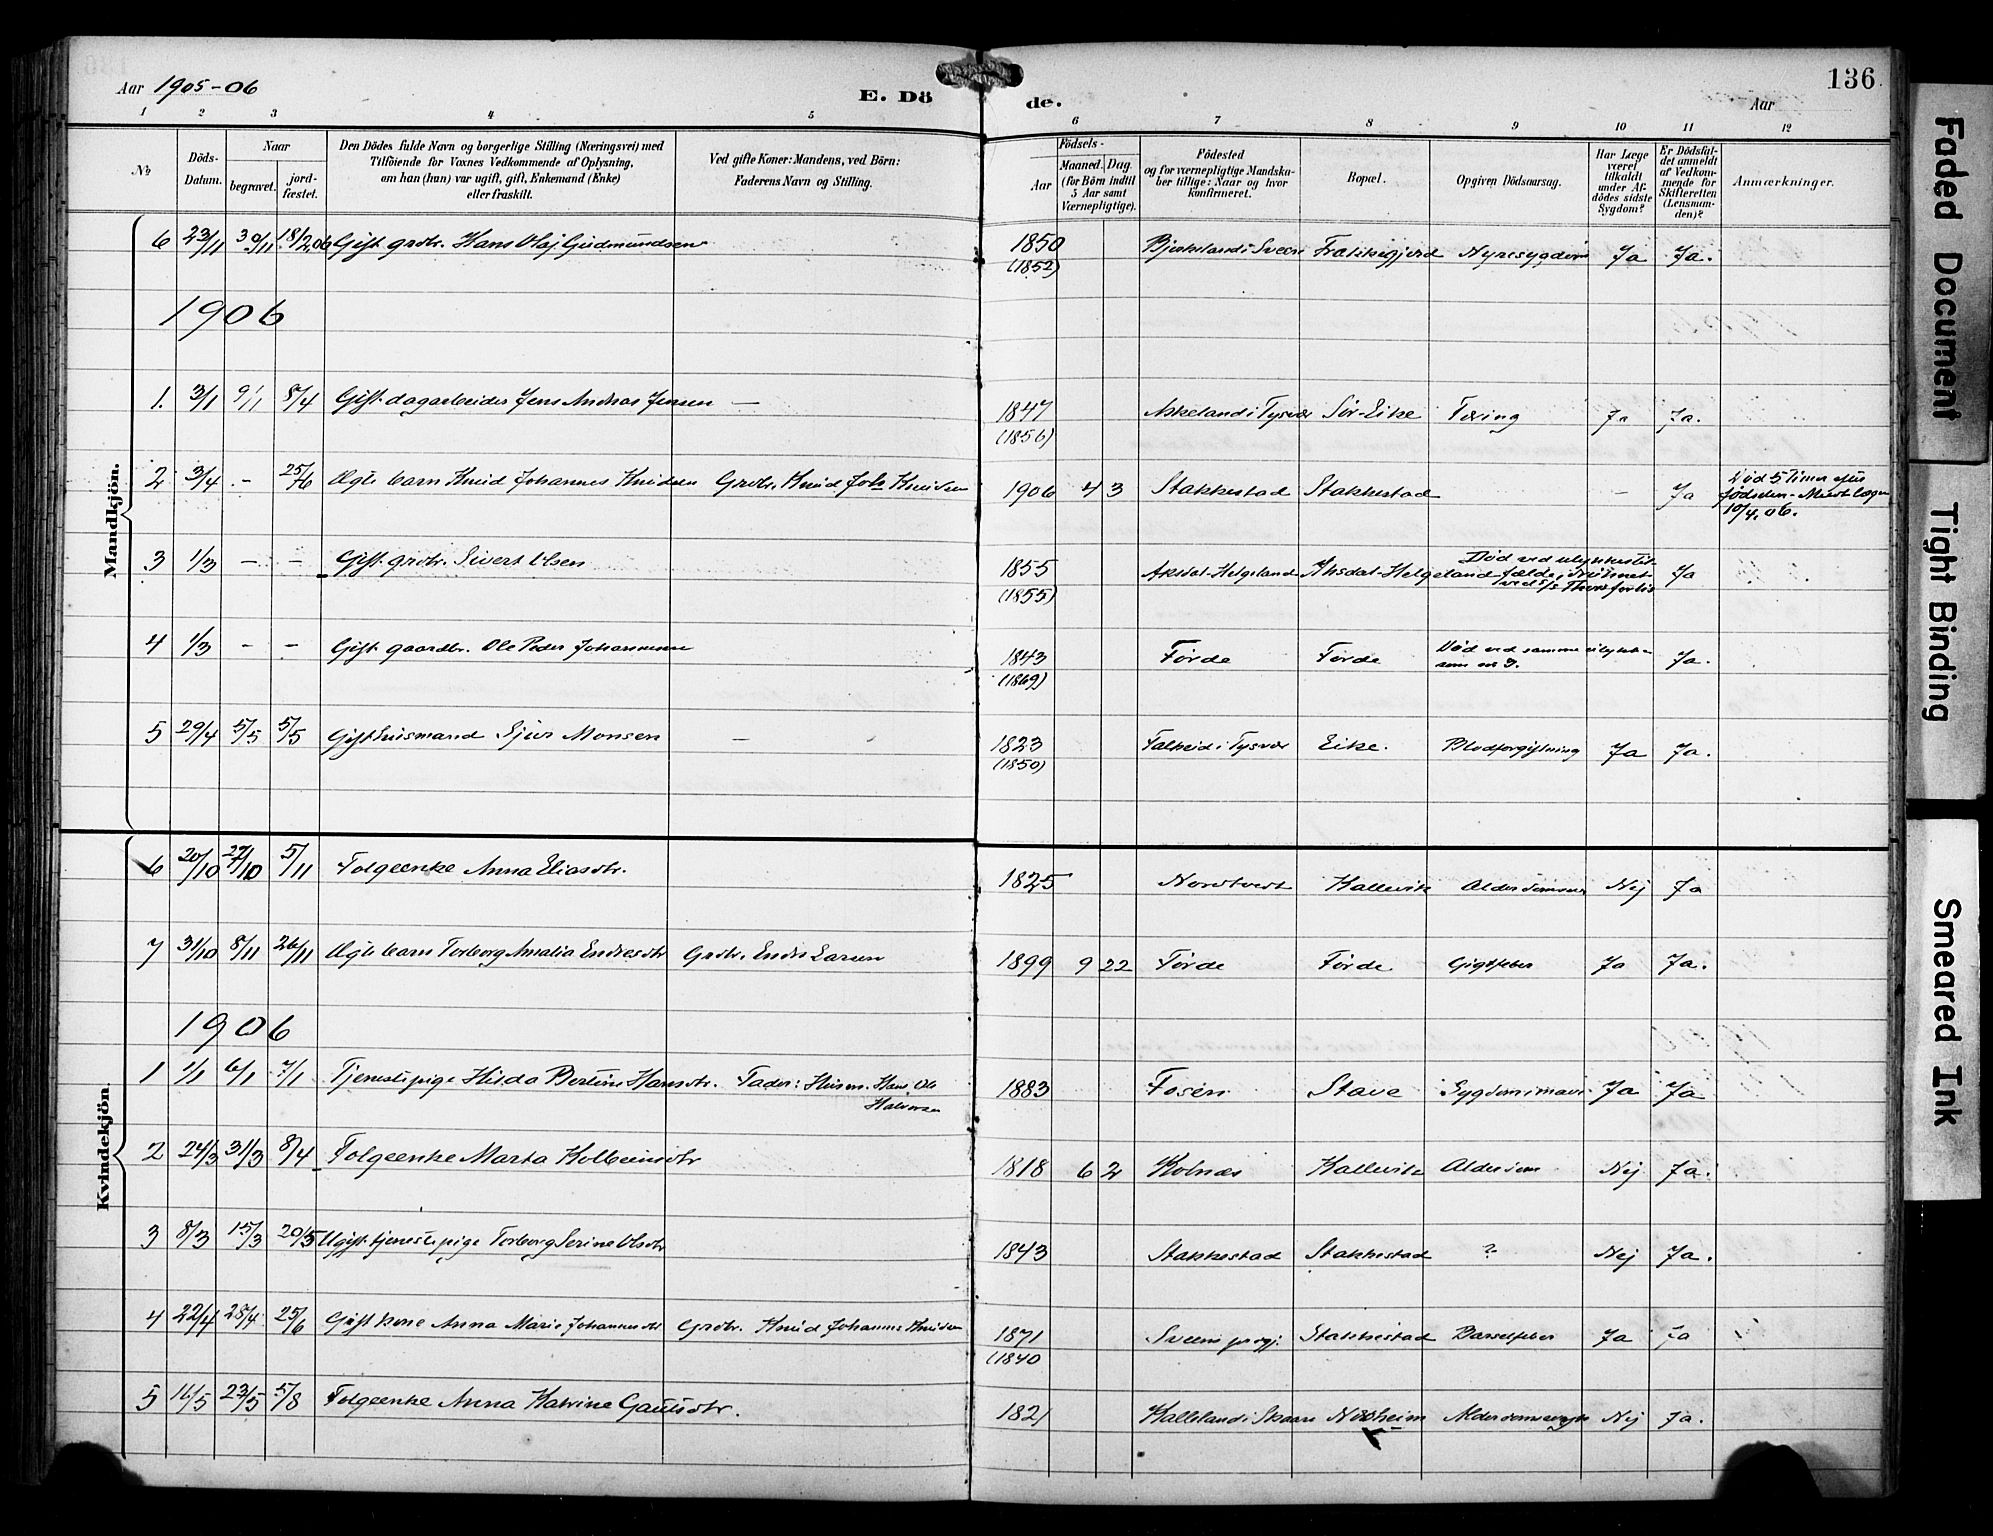 136
Aar 1905-06
E. Dö
de.
Aar
1 2 3 4 5 6 7 8 9 10 11 12
No
Döds-
Datum.
Naar
begravet.
jord-
fæstet.
Den Dödes fulde Navn og borgerlige Stilling (Næringsvei) med
Tilföiende for Voxnes Vedkommende af Oplysning,
om han (hun) var ugift, gift, Enkemand (Enke)
eller fraskilt.
Ved gifte Koner: Mandens, ved Börn:
Faderens Navn og Stilling.
Födsels-
Aar
Maaned. Dag.
(for Börn indtil
5 Aar samt
Værnepligtige).
Födested
og for værnepligtige Mandska-
ber tillige: Naar og hvor
konfirmeret.
Bopæl.
Opgiven Dödsaarsag.
Har Læge
været
tilkaldt
under Af-
dödes sidste
Sygdom?
Er Dödsfal-
det anmeldt
af Vedkom-
mende for
Skifteretten
(Lensman-
den)?
Anmærkninger.
Mandkjön.
6 23/11 30/11 18/2 06 Gift grdbr. Hans Olaj Gudmundsen 1850 Bjerkeland i Sveen Frakkagjerd Nyresygdom Ja Ja.
(1852)
1906
1. 3/1 9/1 8/4 Gift dagarbeider Jens Andreas Jensen — 1847 Askeland i Tysvær Sör-Eike Tæring Ja Ja.
(1856)
2 3/4 - 25/6 Ægte barn Knud Johannes Knudsen Grdbr. Knud Joh. Knudsen 1906 4 3 Stakkestad Stakkestad - Ja Död 5 Timer efter
födselen -
10/4.06.
3 1/3 - - Gift grdbr. Sivert Olsen 1855 Aksdal-Helgeland Aksdal-Helgeland Död ved ulykkestil-
fælde, Ja
(1855)
4 1/3 - - Gift gaardbr. Ole Peder Johannessen 1843 Förde Förde Död ved samme
som no 3. Ja.
(1869)
5 29/4 5/5 5/5 Gift husmand Sjur Monsen — 1823 Falkeid i Tysvær Eike. Blodforgiftning Ja Ja.
(1850)
Kvindekjön.
6 20/10 27/10 5/11 Folgeenke Anna Eliasdtr. 1825 Nordtvedt Kallevik Alderdom Nej Ja
7 31/10 8/11 26/11 Ægte barn Torborg Amalia Endresdtr Grdbr. Endre Larsen 1899 9 22 Förde Förde Gigtfeber Ja Ja.
1906
1 1/1 6/1 7/1 Tjenestepige Hilda Bertine Hansdtr. Fader: Husm. Hans Ole
Halvorsen 1883 Fosen Stave Sygdom i mave Ja Ja
2 24/3 31/3 8/4 Folgeenke Marta Kolbeinsdtr 1818 6 2 Kolnæs Kallevik Alderdom Nej Ja.
3 8/3 15/3 20/5 Ugift tjenestepige Torborg Serine Olsdtr 1843 Stakkestad Stakkestad ? Nej Ja.
4 22/4 28/4 25/6 Gift kone Anna Marie Johannesdtr Grdbr. Knud Johannes Knudsen 1871 Sveen prgj. Stakkestad Barselfeber Ja Ja
(1840
5 16/5 23/5 5/8 Folgeenke Anna Katrine Gautsdtr. 1821 Halleland i Skaare Norheim Alderdomssvaghed Nej Ja.
Faded Document
Tight Binding
Smeared Ink